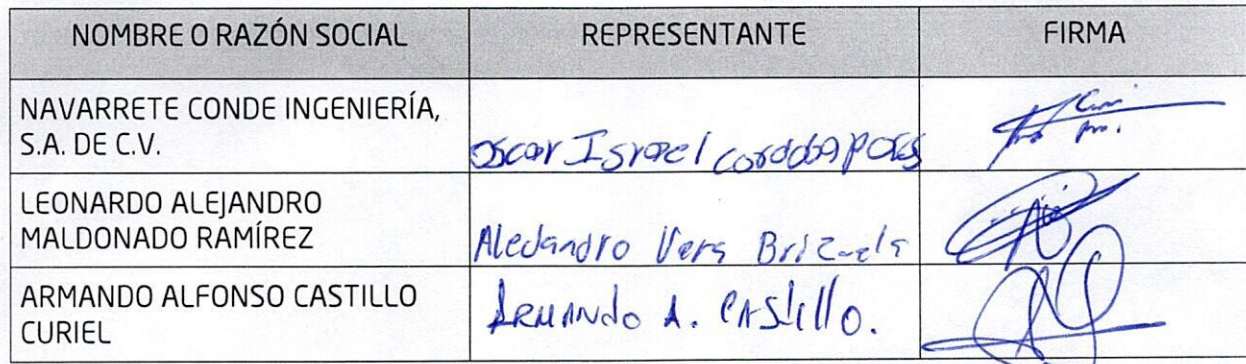 NOMBRE O RAZÓN SOCIAL REPRESENTANTE FIRMA
NAVARRETE CONDE INGENIERÍA,
S.A. DE C.V.
Oscar Israel Cordoba
LEONARDO ALEJANDRO
MALDONADO RAMÍREZ
Alejandro Vera Brizuela
ARMANDO ALFONSO CASTILLO
CURIEL
ARMANDO A. CASTILLO.